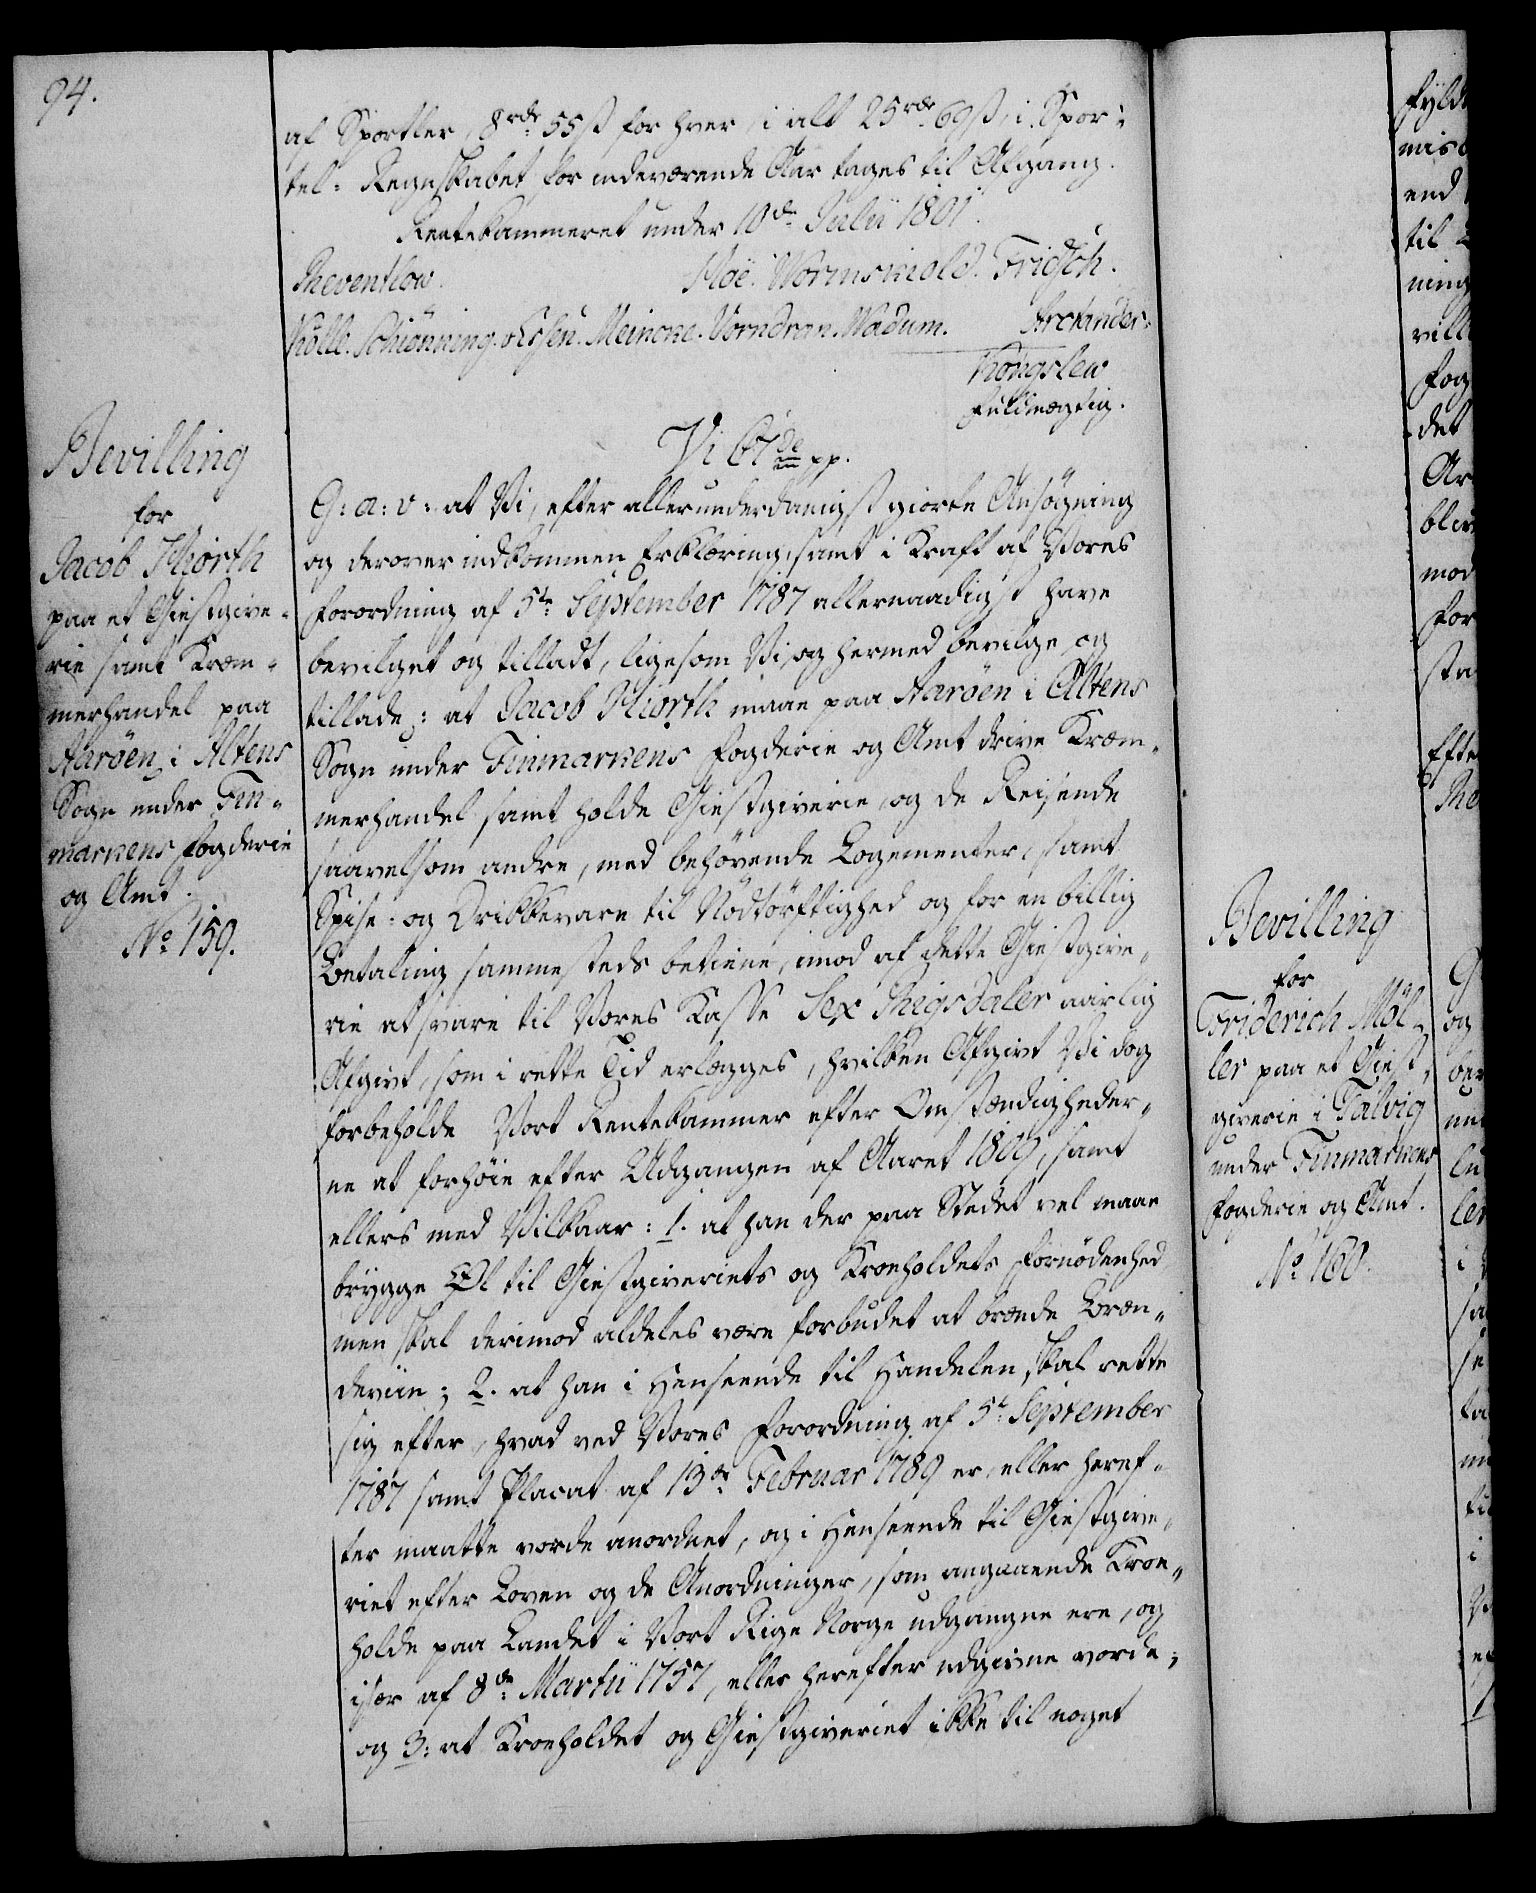 94.
af Sportler, 8 rdr 55 ß for hver, i alt 25 rdr 69 ß, i Spor-
tel-Regnskabet for indeværende Aar tages til Afgang.
Rentekammeret under 10de Julii 1801.
Reventlow. Hoë. Wormskiold. Fridsch.
Kölle. Schiönning. Essen. Meincke. Vorndran. Wadum. Arctander.
Kongslew
Fuldmægtig.
Bevilling
for
Jacob Hiorth
paa et Giestgive-
rie samt Kræm-
merhandel paa
Aaröen i Altens
Sogn under Fin-
markens Fogderie
og Amt.
No 159.
Vi C: 7de pp.
G: a: v: at Vi, efter allerunderdanigst giorte Ansögning
og derover indkommen Erklæring, samt i Kraft af Vores
Forordning af 5te September 1787 allernaadigst have
bevilget og tilladt, ligesom Vi og hermed bevilge og
tillade: at Jacob Hiorth maae paa Aaröen i Altens
Sogn under Finmarkens Fogderie og Amt drive Kræm-
merhandel samt holde Giestgiverie og de Reisende
saavelsom andre, med behövende Logementer, samt
Spise- og Drikkevare til Nödtörftighed og for en billig
Betaling sammesteds betiene, imod af dette Giestgive-
rie at svare til Vores Kasse Sex Rigsdaler aarlig
Afgivt, som i rette Tid erlægges, hvilken Afgivt Vi dog
forbeholde Vort Rentekammer efter Omstændigheder-
ne at forhöie efter Udgangen af Aaret 1809, samt
ellers med Vilkaar: 1. at han der paa Stedet vel maae
brygge Öl til Giestgiveriets og Kroeholdets Fornödenhed
men skal derimod aldeles være forbudet at brænde Bræn-
deviin; 2. at han i Henseende til Handelen skal rette
sig efter, hvad ved Vores Forordning af 5te September
1787 samt Placat af 13de Februar 1789 er, eller heref-
ter maatte vorde anordnet, og i Henseende til Giestgive-
riet efter Loven og de Anordninger, som angaaende Kroe-
holde paa Landet i Vort Rige Norge udgangne ere, og
især af 8de Martii 1757, eller herefter udgivne vorde;
og 3: at Kroeholdet og Giestgiveriet ikke til noget
Bevilling
for
Friderich Möl-
ler paa et Giest-
giverie i Talvig
under Finmarkens
Fogderie og Amt.
No 160.